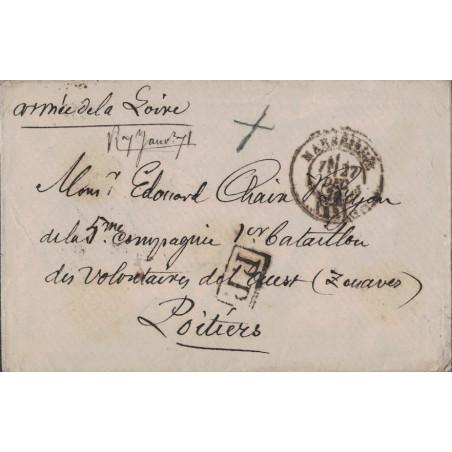 armée de la Loire
R 7 Janv. 71
MARSEILLE
27
DEC
Monsr Edouard Chain
de la 5me Compagnie 1er Bataillon
des Volontaires de l'Ouest (Zouaves)
P.P.
Poitiers